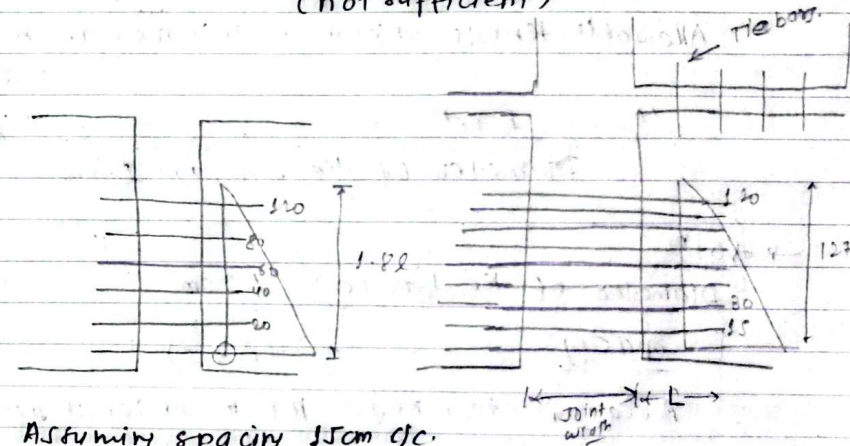 (not sufficient)
Tie bars.
120
80
60
40
20
1.8l
120
30
15
127
Joint width
L
Assuming spacing 15cm c/c.